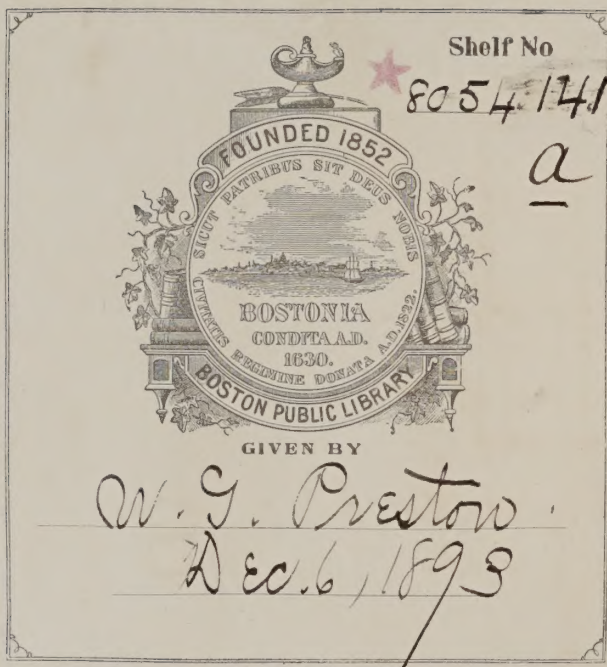 Shelf No
8054.141
a
FOUNDED 1852
SICUT PATRIBUS SIT DEUS NOBIS
BOSTONIA
CONDITA A.D.
1630.
CIVITATIS REGIMINE DONATA A.D. 1822.
BOSTON PUBLIC LIBRARY
GIVEN BY
W. G. Preston.
Dec. 6, 1893